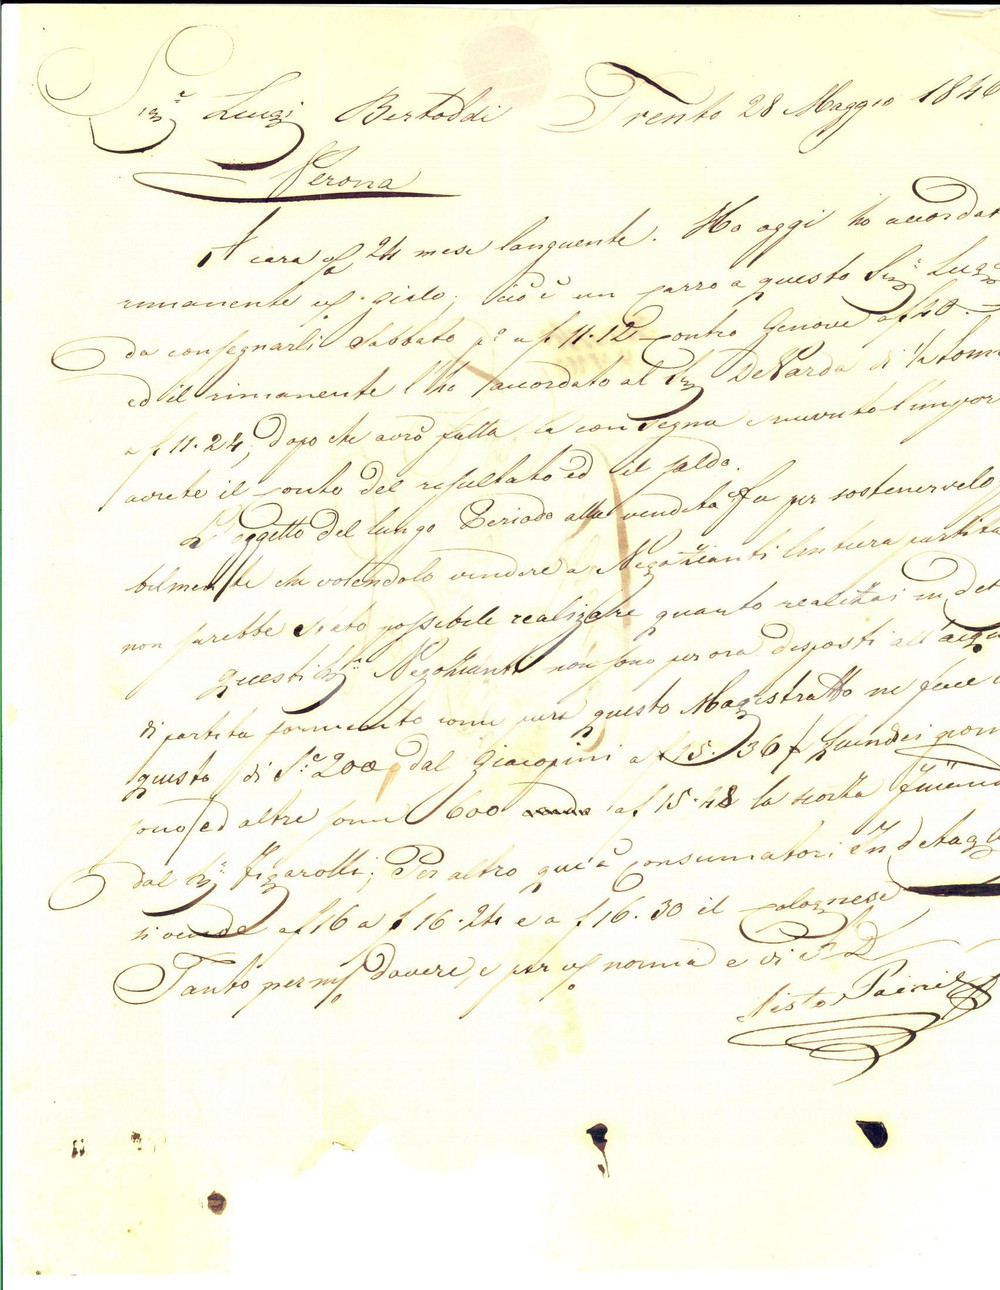 Sig.r Luigi Bertoldi Trento 28 Maggio 184
Verona
A cara 24 mese languente. Ho oggi ho accordat
rimanente giolo; cioè un carro a questo Sig.r Luig
da consegnarli Sabbato p.o a f 11.12 contro Genove a f 40.
ed il rimanente l'ho accordato al Sig DeVarda di
a f 11.24, dopo che avrò fatta la consegna e ricevuto l'impor
avrete il conto del resultato ed il saldo.
L'oggetto del lungo Periodo alla vendita fu per sostenervelo
bilmente che volendolo vendere a Negozianti l'intiera partita
non sarebbe stato possibile realizare quanto realizzai in det
Questi Sig.ri Negozianti non sono per ora disposti all'acqu
di partita formento come pure questo Magistratto ne fece
quisto di S.e 200 dal Giacopini a f 15.36 f Quindici giorni
sono ed altre some 600 a f 15.48 la scorza
dal Sig.r Figarolli; Per altro qui a consumatori in detag
si vende a f 16 a f 16.24 e a f 16.30 il Colognese
Tanto per mio dovere, e per norma e vi
Sisto